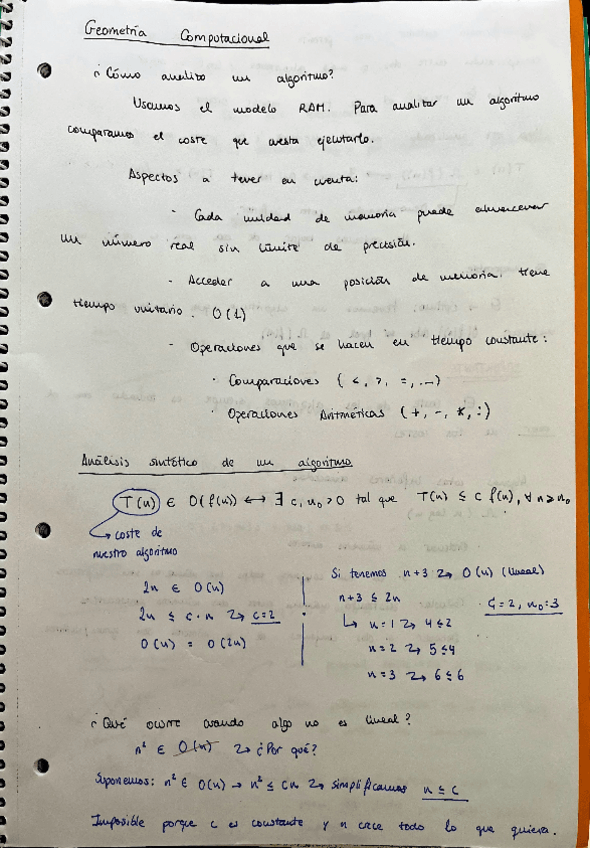 Geometría Computacional
¿Cómo analizo un algoritmo?
Usamos el modelo RAM. Para analizar un algoritmo
comparamos el coste que cuesta ejecutarlo.
Aspectos a tener en cuenta:
· Cada unidad de memoria puede almacenar
un número real sin límite de precisión.
- Acceder a una posición de memoria tiene
tiempo unitario. O(1)
- Operaciones que se hacen en tiempo constante:
· Comparaciones (<, >, =, ...)
· Operaciones Aritméticas (+, -, *, :)
Análisis sintótico de un algoritmo
T(n) ∈ O(f(n)) ↔ ∃ c, n₀ > 0 tal que T(n) ≤ c f(n), ∀ n ≥ n₀
→ coste de
nuestro algoritmo
2n ∈ O(n)
2n ≤ c · n → c=2
O(n) = O(2n)
Si tenemos n+3 → O(n) (lineal)
n+3 ≤ 2n
C=2, n₀:3
↳ n=1 → 4≤2
n=2 → 5≤4
n=3 → 6≤6
¿Qué ocurre cuando algo no es lineal?
n² ∈ O(n) → ¿Por qué?
Suponemos: n² ∈ O(n) → n² ≤ Cn → Simplificamos n ≤ C
Imposible porque c es constante y n crece todo lo que quiera.